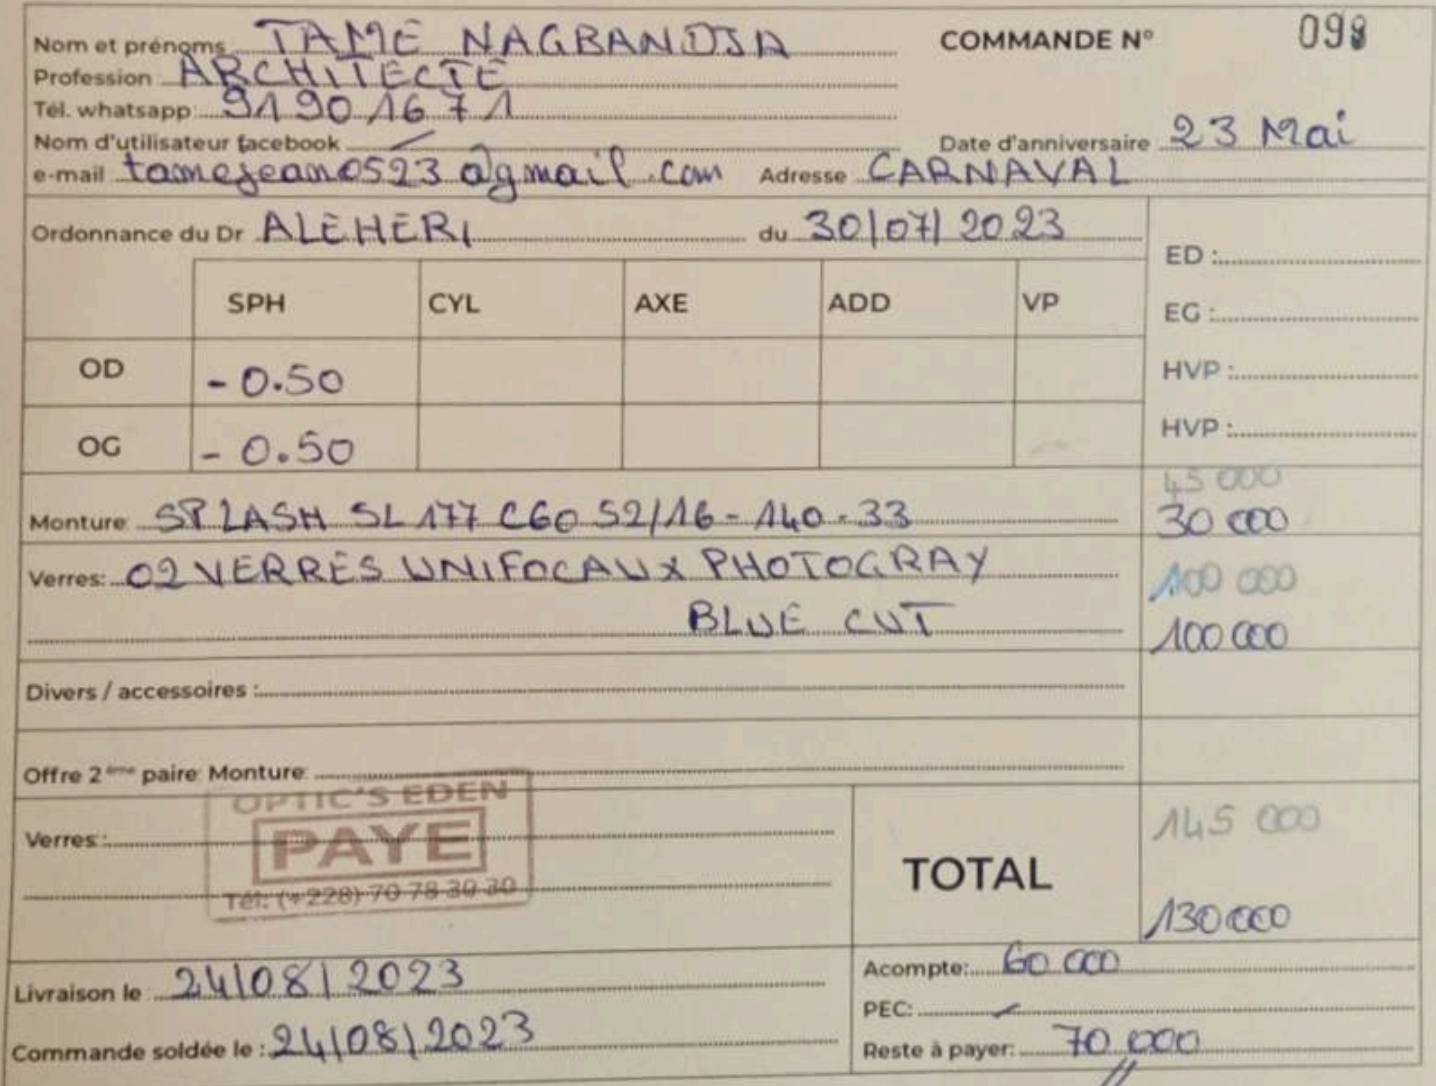 Nom et prénoms TAME NAGBANDJA COMMANDE N° 098
Profession ARCHITECTE
Tél. whatsapp: 91 90 16 71
Nom d'utilisateur facebook — Date d'anniversaire 23 Mai
e-mail tamejean0523@gmail.com Adresse CARNAVAL
Ordonnance du Dr ALEHERI du 30/07/2023
ED :
SPH CYL AXE ADD VP
EG :
OD -0.50
HVP :
OG -0.50
HVP :
45 000
Monture: SPLASH SL 177 C60 52/16-140-33 30 000
Verres: 02 VERRES UNIFOCAUX PHOTOGRAY 100 000
BLUE CUT 100 000
Divers / accessoires :
Offre 2ème paire: Monture:
OPTIC'S EDEN
Verres :
PAYE
Tél: (+228) 70 78 30 30
TOTAL 145 000
130 000
Livraison le : 24/08/2023 Acompte: 60 000
PEC: —
Commande soldée le : 24/08/2023 Reste à payer: 70 000